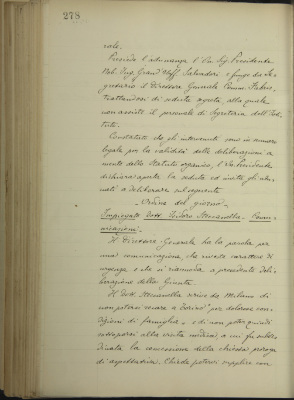 278
role.
Presiede l'adunanza l'On. Sig. Presidente
Nob. Ing. Grand'Uff. Salvadori e funge da Se-
gretario il Direttore Generale Comm.
trattandosi di seduta segreta alla quale
non assiste il personale di Segreteria dell'Isti-
tuto.
Constatato che gli intervenuti sono in numero
legale per la validità delle deliberazioni a
mente dello Statuto organico, l'On. Presidente
dichiara aperta la seduta ed invita gli adu-
nati a deliberare sul seguente
Ordine del giorno
Impiegato Dott. Isidoro Comu-
nicazioni.
Il Direttore Generale ha la parola per
una comunicazione, che riveste carattere di
urgenza e che si riannoda a precedente deli-
berazione della Giunta.
Il Dott. scrive da Milano di
non potersi recare a Torino per dolorose con-
dizioni di famiglia, e di non poter quindi
sottoporsi alla visita medica, a cui fu subor-
dinata la concessione della chiesta proroga
di aspettativa. Chiede potervi supplire con